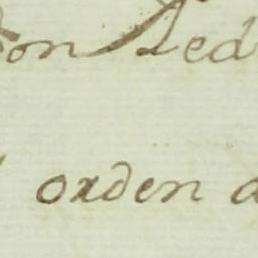 on Ped
orden